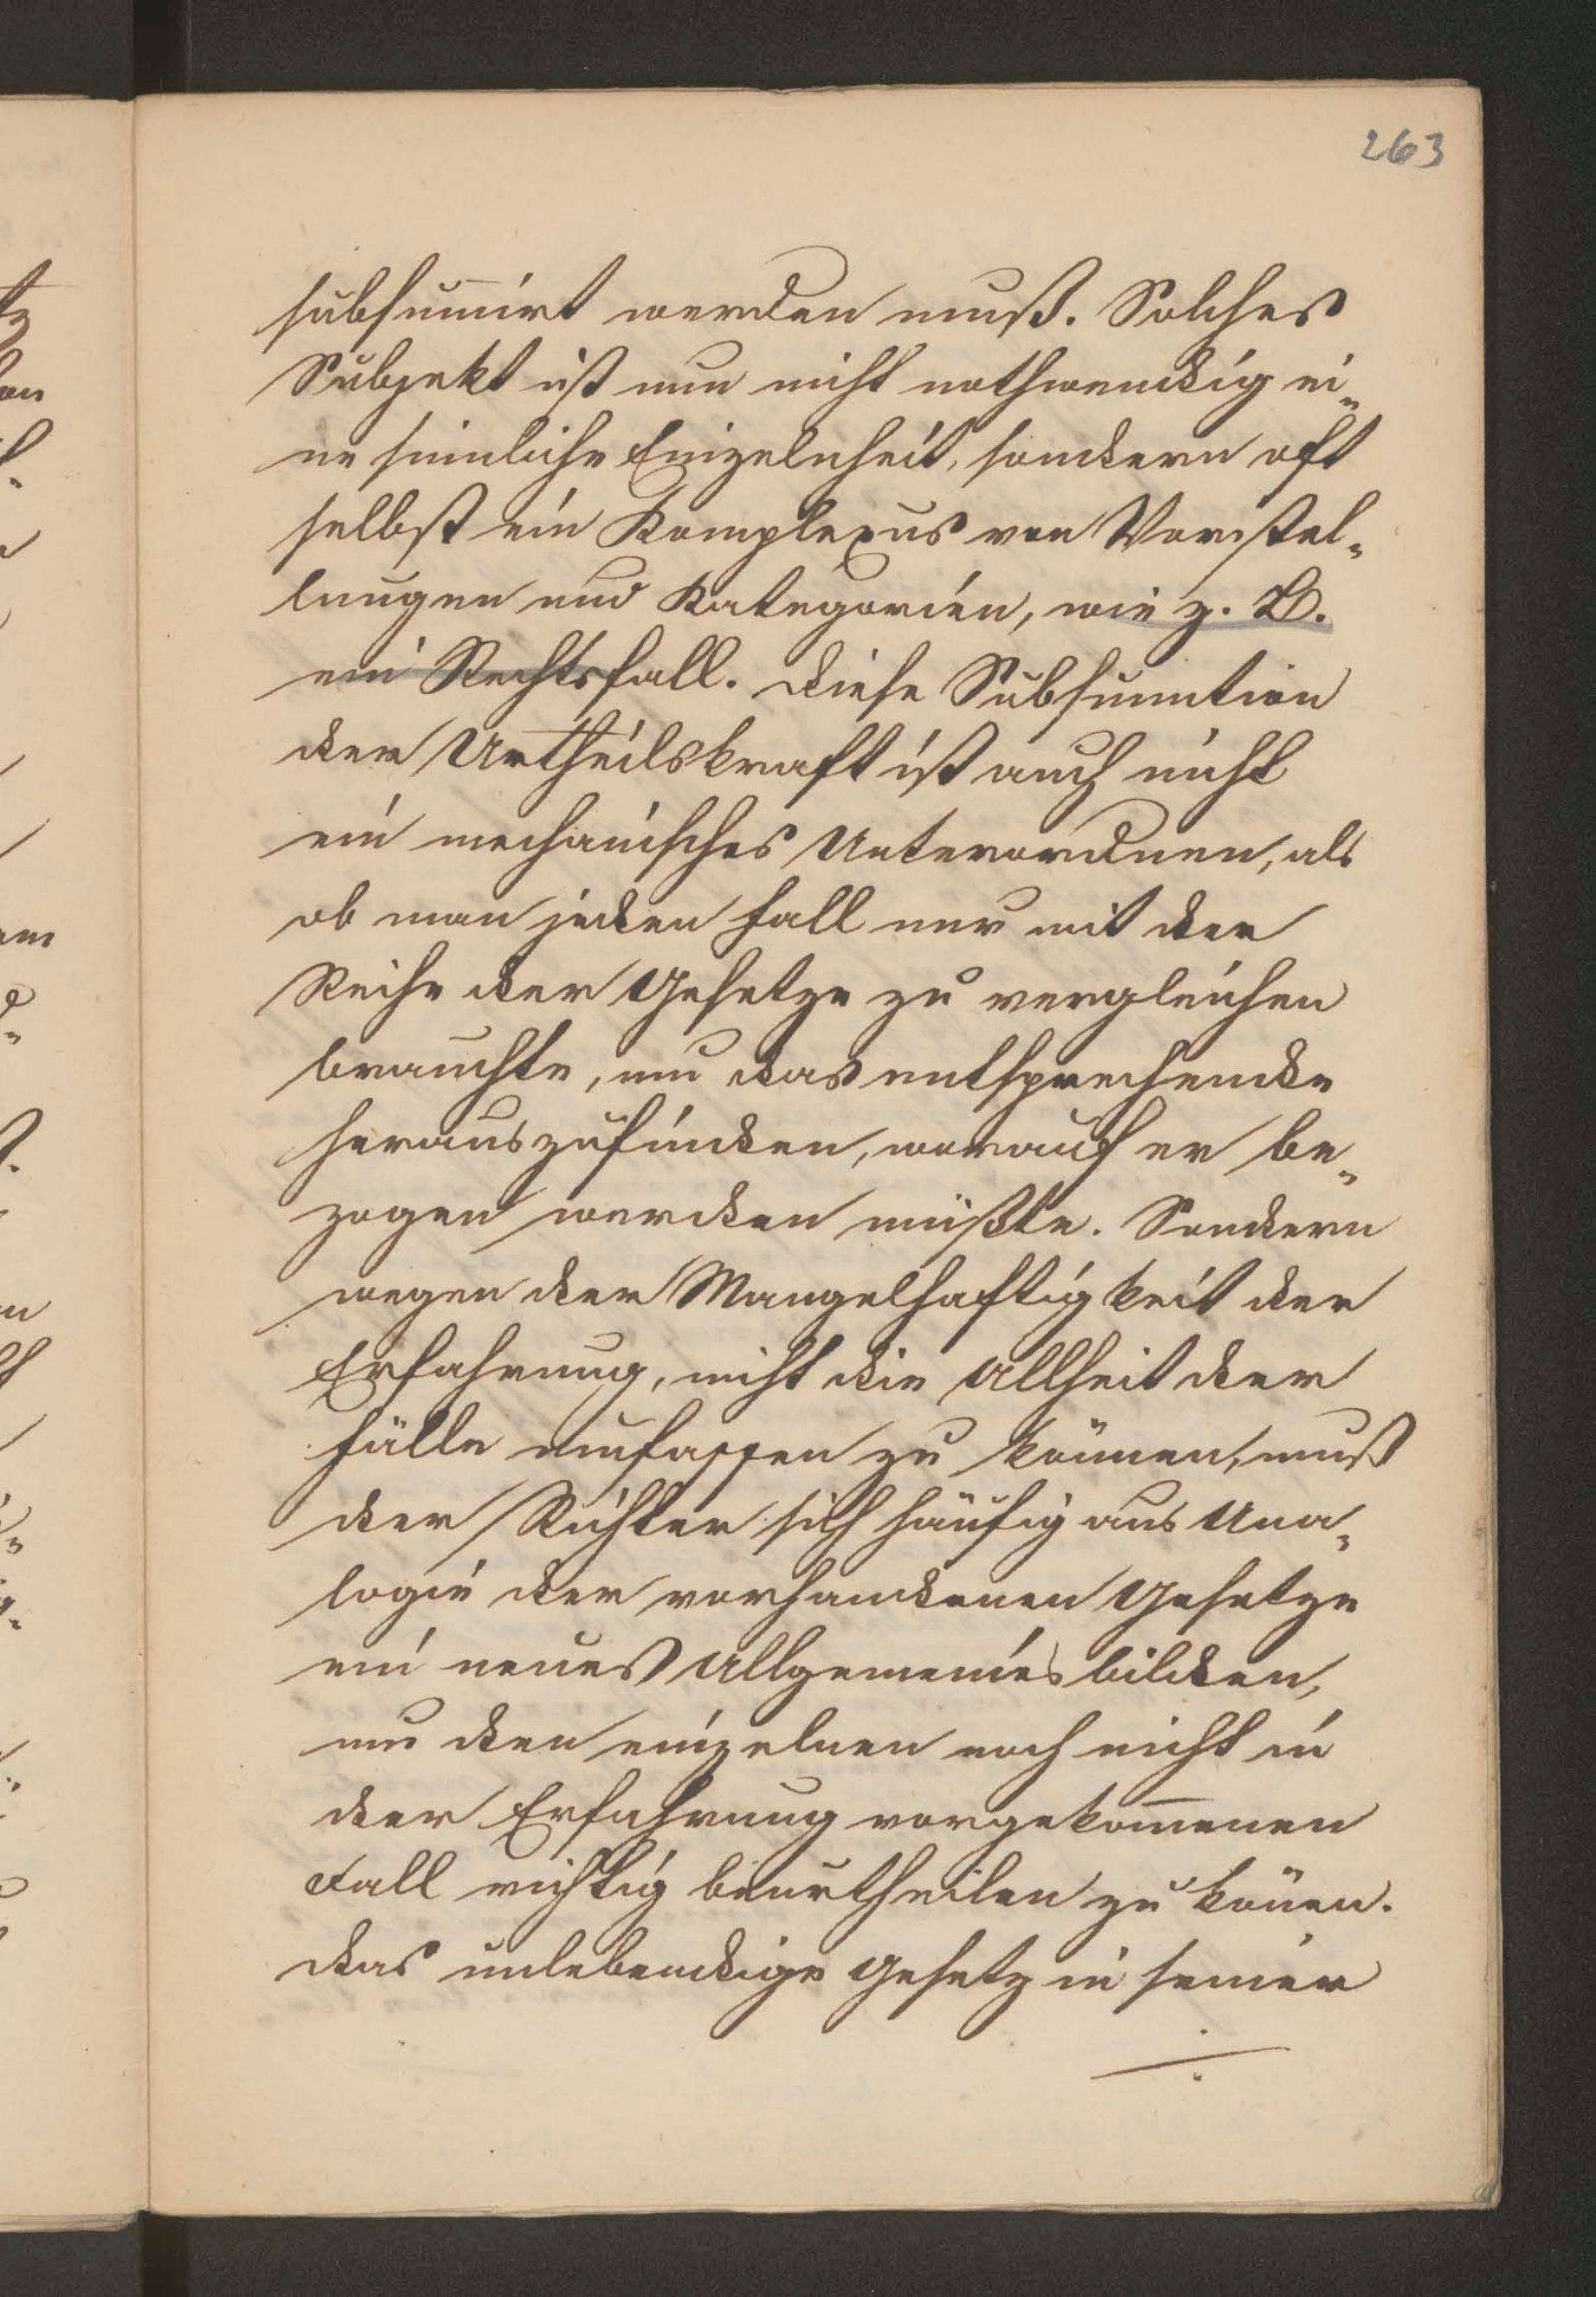 263
subsumirt werden muß. Solches
Subjekt ist nun nicht nothwendig ei„
ne sinnliche Einzelnheit, sondern oft
selbst ein Komplexus von Vorstel„
lungen und Kategorien, wie z. B.
ein Rechtsfall. Diese Subsumtion
der Urtheilskraft ist auch nicht
ein mechanisches Unterordnen, als
ob man jeden Fall nur mit der
Reihe der Gesetze zu vergleichen
brauchte, um das entsprechende
herauszufinden, worauf er be„
zogen werden müßte. Sondern
wegen der Mangelhaftigkeit der
Erfahrung, nicht die Allheit der
Fälle umfassen zu können, muß
der Richter sich häufig aus Ana„
logie der vorhandenen Gesetze
ein neues Allgemeines bilden,
um den einzelnen noch nicht in
der Erfahrung vorgekom̅enen
Fall richtig beurtheilen zu kön̅en.
Das unlebendige Gesetz in seiner